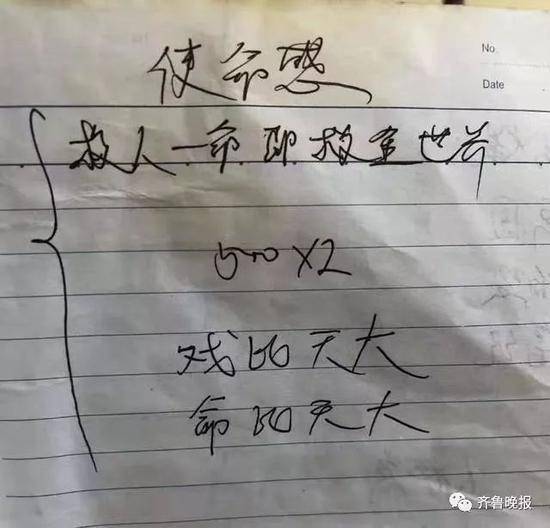 使命感
No
Date
救人一命即救全世界
500X2
戏比天大
命比天大
齐鲁晚报